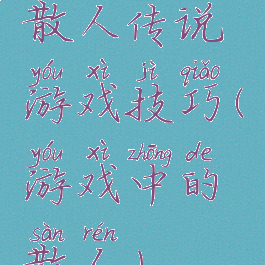 散人传说
yóu xì jì qiǎo
游戏技巧(
yóu xì zhōng de
游戏中的
sàn rén
散人)